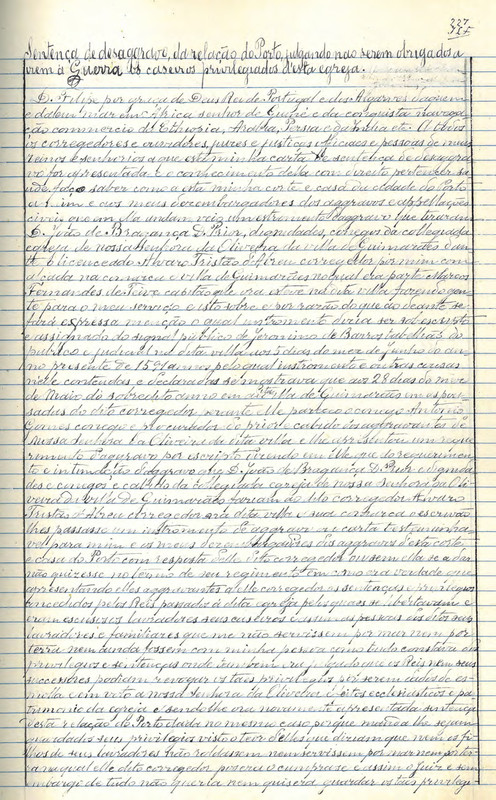 337
Sentença de desagravo, da relação do Porto, julgando não serem obrigados a
irem á Guerra os caseiros privilegiados d'esta egreja.
D. Filipe por graça de Deus Rei de Portugal e dos Algarves daquem
e dalem mar em Africa senhor de Guiné e da conquista navega-
ção commercio d'Ethiopia, Arabia, Persia e da India etc. A todos
os corregedores e ouvidores, juizes e justiças officiaes e pessoas de meus
reinos e senhorios a que esta minha carta de sentença de desagra-
vo for apresentada e o conhecimento della com direito pertencer sa-
ude, faço saber como a esta minha corte e casa da cidade do Porto
a mim e aos meus dezembargadores dos aggravos e appellações
civeis que em ella andam veiu um estromento d'aggravo que tiraram
D. João de Bragança D. Prior, dignidades, conegos da collegiada
egreja de nossa senhora da Oliveira da villa de Guimarães d'an-
te o licenceado Alvaro Tristão d'Abreu corregedor por mim com
alçada na comarca e villa de Guimarães no qual era parte Marcos
Fernandes de Teive capitão que ora estava na dita villa fazendo gen-
te para o meu serviço e isto sobre e por razão do que ao deante se
fará expressa menção o qual instromento dizia ser sobescripto
e assignado do signal publico de Jeronimo de Barros tabellião do
publico e judicial na dita villa aos 5 dias do mez de junho do an-
no presente de 1591 annos pelo qual instromento e outras cousas
nelle contendas e declaradas se mostrava que aos 28 dias do mez
de Maio do sobredito anno em a villa de Guimarães em as pou-
sadas do dito corregedor perante elle pareceo o conego Antonio
Gomes conego e procurador do prior e cabido dos aggravantes de
Nossa Senhora da Oliveira da dita villa e lhe apresentou um reque-
rimento d'aggravo por escripto dizendo em elle que do requerimen-
to e intimação d'aggravo que D. João de Bragança D. Prior e dignida-
des e conegos e cabido da collegiada egreja de nossa senhora da Oli-
veira da villa de Guimarães faziam ao dito corregedor Alvaro
Tristão d'Abreu corregedor da dita villa e sua comarca e escrivão
lhes passasse um instromento de aggravo ou carta testemunha-
vel para mim e os meus dezembargadores dos aggravos d'esta corte
e casa do Porto com resposta delle dito corregedor ou sem ella se a dar
não quizesse no termo de seu regimento em como era verdade que
apresentando elles aggravantes a elle corregedor as sentenças e privilegios
concedidos pelos Reis passados á dita egreja pelos quaes se libertavam e
eram escusos os lavradores seus caseiros e assim as pessoas dos ditos seus
lavradores e familiares que me não servissem por mar nem por
terra nem ainda fossem com minha pessoa como tudo constava dos
privilegios e sentenças onde tambem era julgado que os Reis nem seus
successores podiam revogar os taes privilegios por serem dados de es-
molla em voto a nossa Senhora da Oliveira e feitos ecclesiasticos e pa-
trimonio da egreja e sendo lhe ora novamente apresentada sentença
desta relação do Porto dada no mesmo caso porque mandão lhe sejam
guardados seus privilegios visto o teor delles que diziam que nem os fi-
lhos de seus lavradores não roldassem nem servissem por mar nem por ter-
ra na qual elle dito corregedor pozera o cumpra-se e assim o Juiz e sem
embargo de tudo não queria nem quizera guardar os taes privilegi-